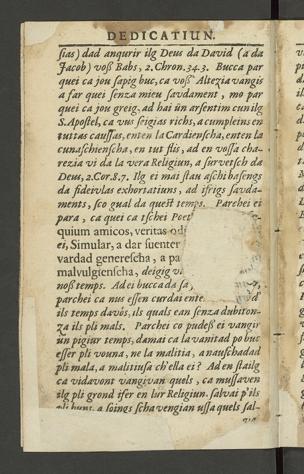 DEDICATIUN.
sias) dad anqurir ilg Deus da David (a da
Jacob) voß Babs, 2. Chron. 34. 3. Bucca par
quei ca jou sapig buc, ca voß Altezia vangis
a far quei senza mieu savdament, mo par
quei ca jou greig, ad hai ün arsentim cun ilg
S. Apostel, ca vus seigias richs, a cumpleins en
tuttas caussas, enten la Cardienscha, enten la
cunaschienscha, en tut flis, ad en vossa cha-
rezia vi da la vera Religiun, a survetsch da
Deus, 2. Cor. 8. 7. Ilg ei mai stau aschi basengs
da fideivlas exhortatiuns, ad ifrigs savda-
ments, sco gual da quest temps. Parchei ei
para, ca quei ca tschei Poet
quium amicos, veritas odi
ei, Simular, a dar suenter
vardad generescha, a pa
malvulgienscha, deigig vi
noß temps. Ad ei bucca da sa
parchei ca nus essen curdai ente
ils temps davòs, ils quals ean senza dubiton-
za ils pli mals. Parchei co pudeß ei vangir
un pigiur temps, damai ca la vanitad po buc
esser pli vouna, ne la malitia, a nauschadad
pli mala, a malitiusa ch'ella ei? Ad en stailg
ca vidavont vangivan quels, ca mussaven
ilg pli grond ifer en lur Religiun, salvai p'ils
pli buns, a soings scha vengian ussa quels sal-